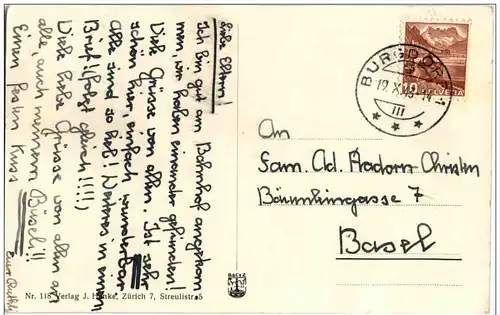 Liebe Eltern!
Ich bin gut am Bahnhof angekom
men, wir haben einander gefunden!
Viele Grüsse von allen. Ist sehr
schön hier, einfach wunderbar
Alle sind so lieb! Weiteres in einem
Brief! (folgt gleich!!!!)
Viele liebe Grüsse von allen an
alle, auch meinem Büseli!!
Einen festen Kuss
Eure Ruthli
BURGDORF
19.X.
III
HELVETIA
An
Fam. Ad. Aadorn-Christen
Bäumlingasse 7
Basel
Nr. 118 Verlag J. Hanke, Zürich 7, Streulistr. 5